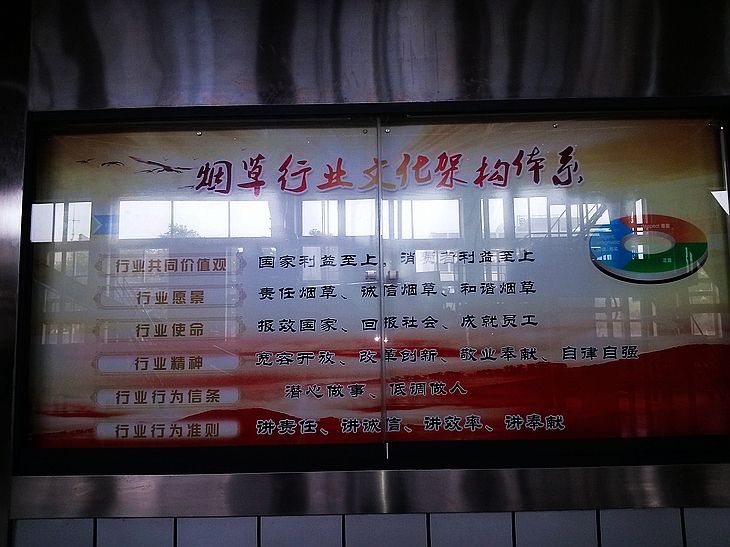 烟草行业文化架构体系
行业共同价值观 国家利益至上，消费者利益至上
行业愿景 责任烟草、诚信烟草、和谐烟草
行业使命 报效国家、回报社会、成就员工
行业精神 宽容开放、改革创新、敬业奉献、自律自强
行业行为信条 潜心做事、低调做人
行业行为准则 讲责任、讲诚信、讲效率、讲奉献